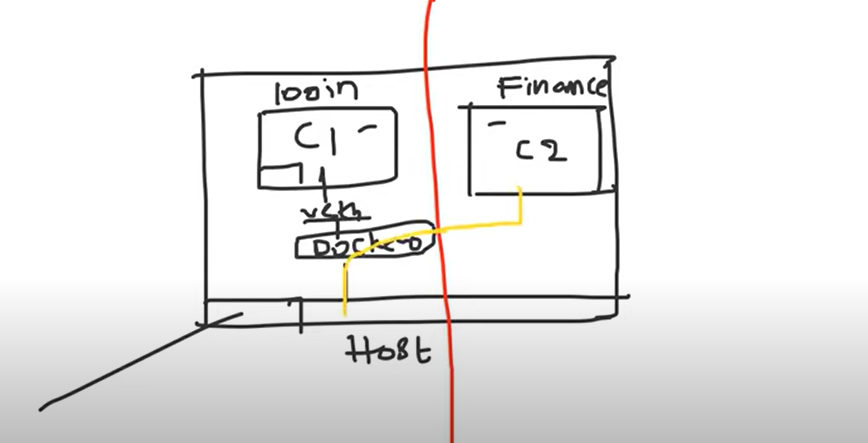 login
Finance
C1
C2
veth
Docker0
Host